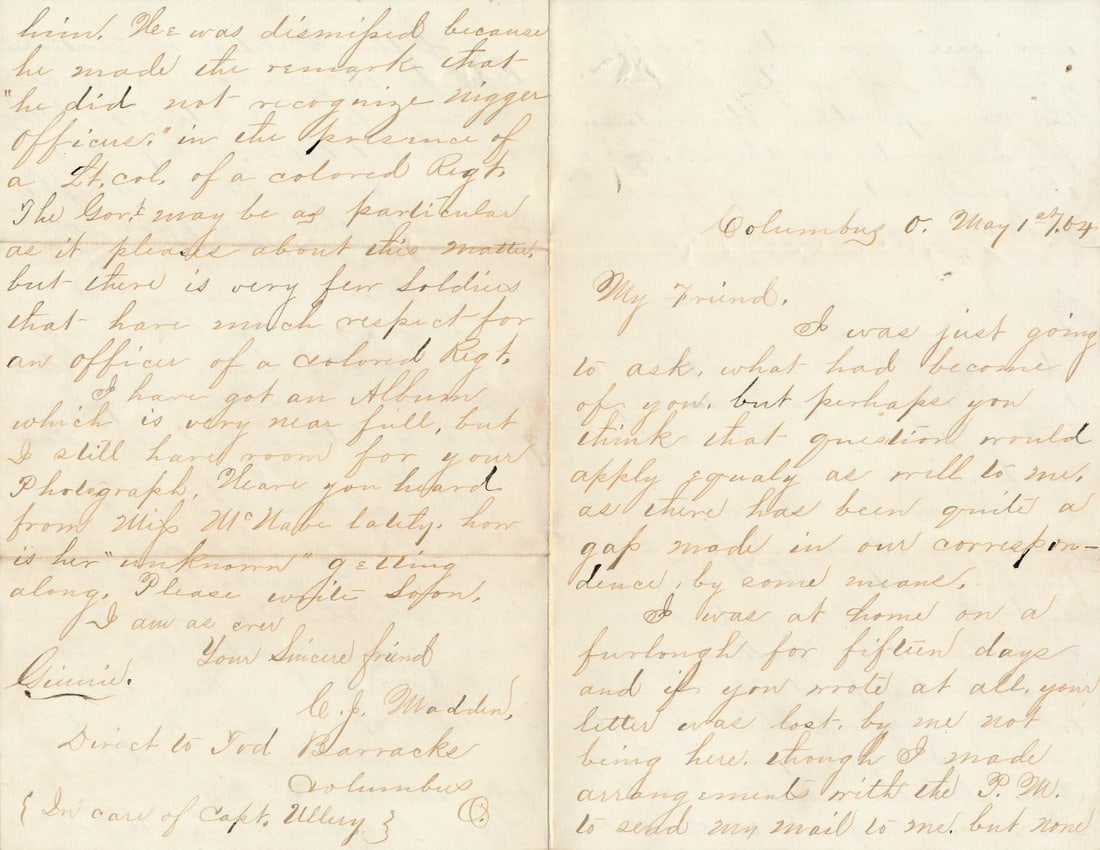 him. He was dismissed because
he made the remark that
"he did not recognize nigger
officers." in the presence of
a Lt. col. of a colored Regt.
The Gov.t may be as particular
as it pleases about this matter,
but there is very few soldiers
that have much respect for
an officer of a colored Regt.
I have got an Album
which is very near full, but
I still have room for your
Photograph. Heave you heard
from Miss McNabe lately. how
is her "unknown" getting
along. Please write soon.
I am as ever
Your Sincere friend
Ginnie.
C. J. Madden,
Direct to Tod Barracks
Columbus
{ In care of Capt. Ullery } O.
Columbus O. May 1st /64
My Friend.
I was just going
to ask, what had become
of you, but perhaps you
think that question would
apply equaly as well to me,
as there has been quite a
gap made in our correspon-
dence, by some means.
I was at home on a
furlough for fifteen days
and if you wrote at all, your
letter was lost, by me not
being here, though I made
arrangements with the P. M.
to send my mail to me. but none